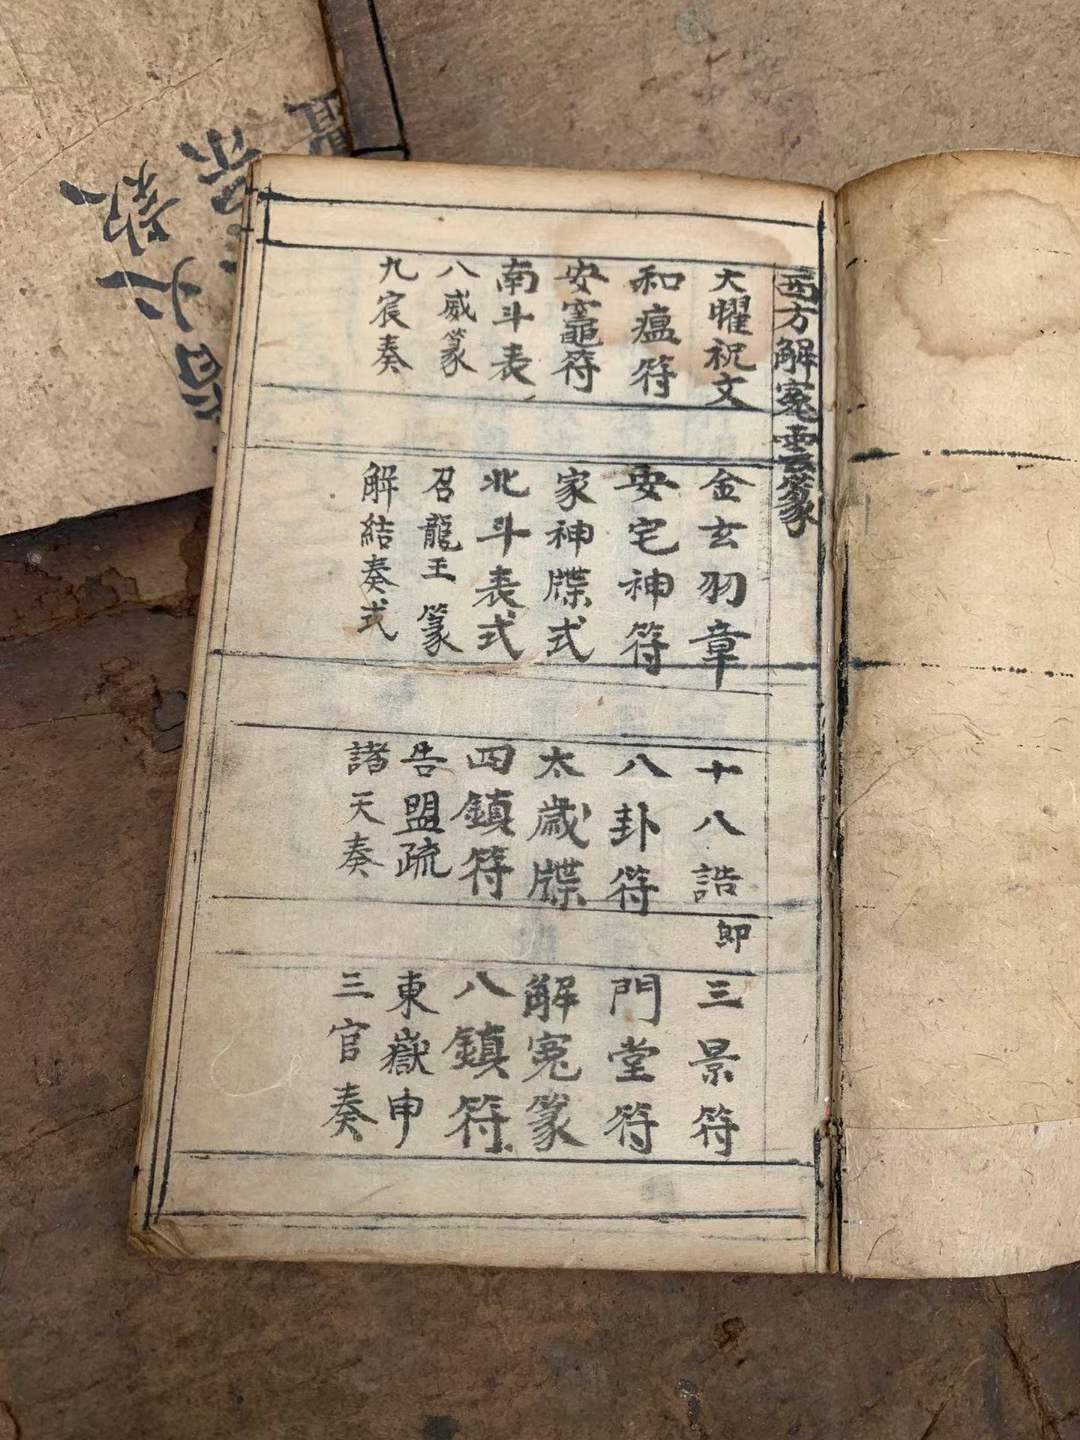 西方解冤雲篆
大曜祝文 金玄羽章 十八誥 即 三景符
和瘟符 安宅神符 八卦符 門堂符
安竈符 家神牒式 太歲牒 解冤篆
南斗表 北斗表式 四鎮符 八鎮符
八威篆 召龍王篆 告盟疏 東嶽申
九宸奏 解結奏式 諸天奏 三官奏